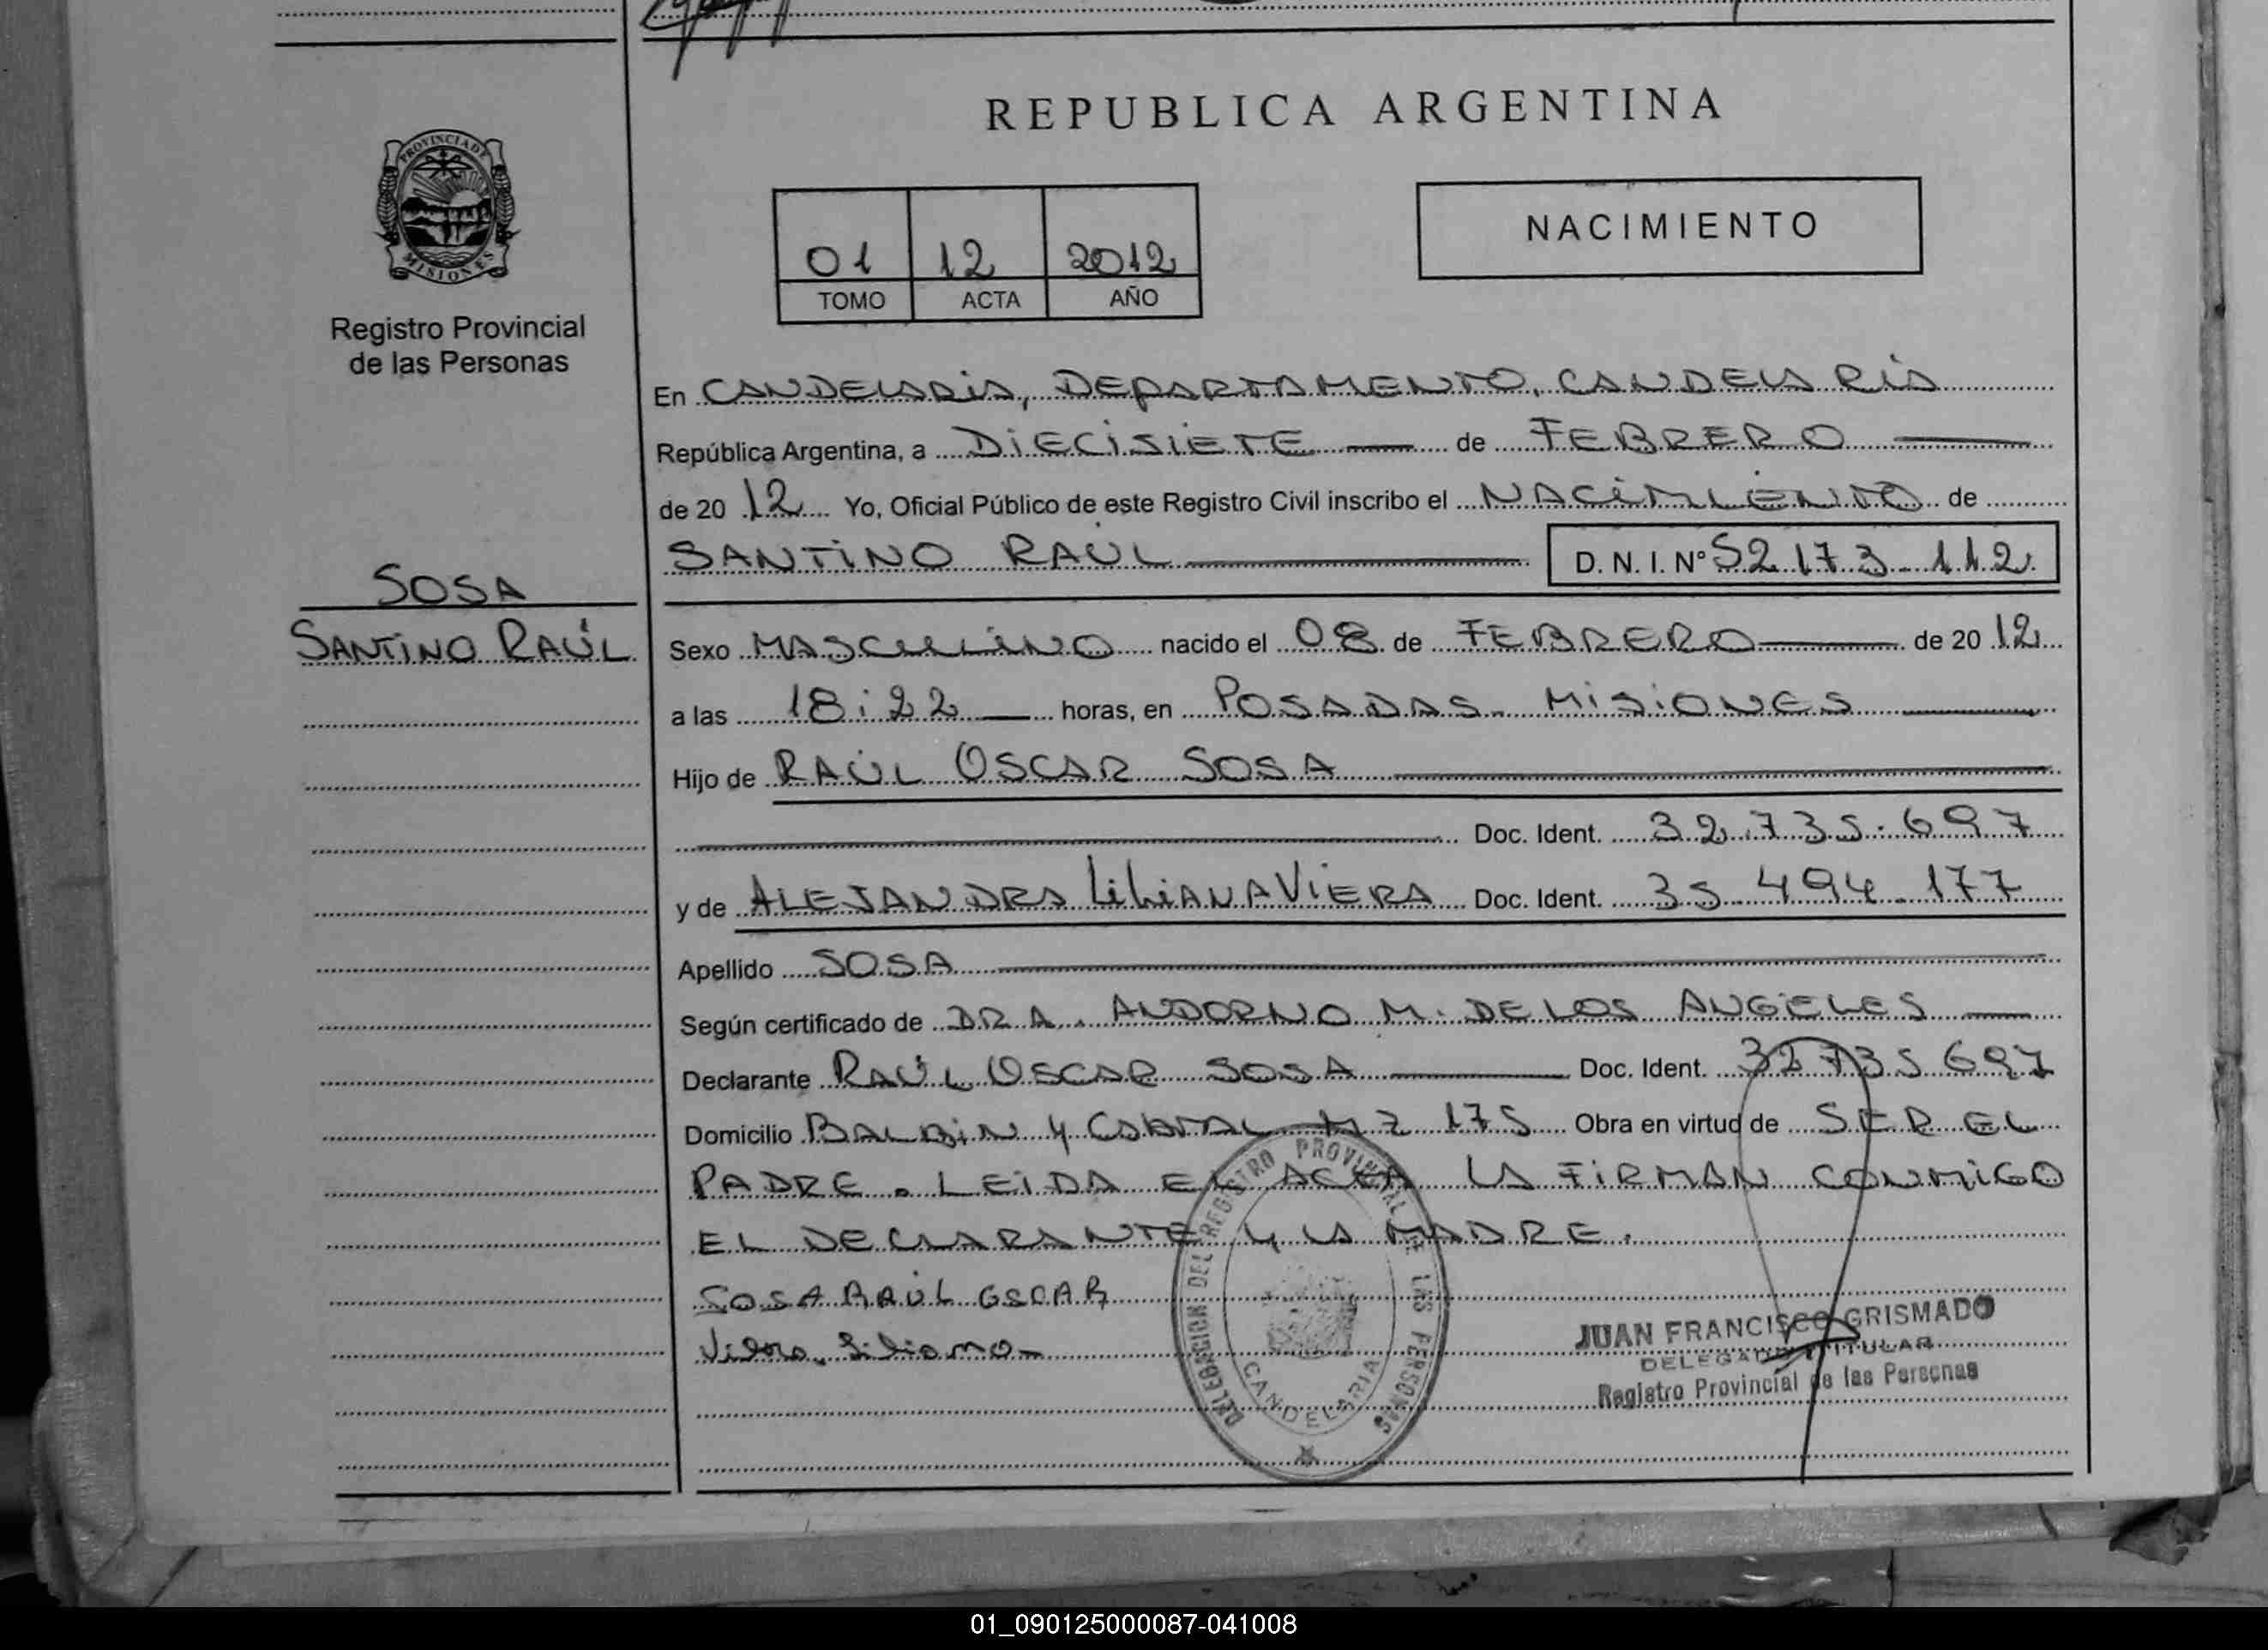 REPUBLICA ARGENTINA
PROVINCIA DE
MISIONES
Registro Provincial
de las Personas
01 12 2012
TOMO ACTA AÑO
NACIMIENTO
En CANDELARIA, DEPARTAMENTO, CANDELARIA
República Argentina, a DIECISIETE de FEBRERO
de 20 12 Yo, Oficial Público de este Registro Civil inscribo el NACIMIENTO de
SANTINO RAÚL D. N. I. N° 52.173.112
SOSA
SANTINO RAÚL
Sexo MASCULINO nacido el 08 de FEBRERO de 20 12
a las 18:22 horas, en POSADAS - MISIONES
Hijo de RAÚL OSCAR SOSA
Doc. Ident. 32.735.697
y de ALEJANDRA LILIANA VIERA Doc. Ident. 35.494.177
Apellido SOSA
Según certificado de DRA. ANDORNO M. DE LOS ANGELES
Declarante RAÚL OSCAR SOSA Doc. Ident. 32735697
Domicilio BALBIN Y CABRAL MZ 175 Obra en virtud de SER EL
PADRE. LEIDA EL ACTA LA FIRMAN CONMIGO
EL DECLARANTE Y LA MADRE.
SOSA RAÚL OSCAR
Viera, Liliana
DELEGACION DEL REGISTRO PROVINCIAL DE LAS PERSONAS
CANDELARIA
JUAN FRANCISCO GRISMADO
DELEGADO TITULAR
Registro Provincial de las Personas
01_090125000087-041008